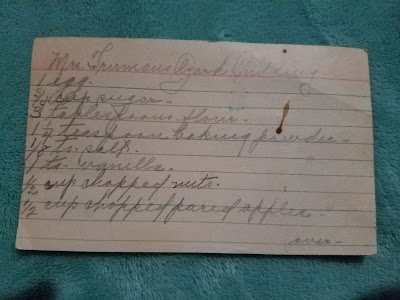 Mrs. Truman's Ozark Pudding.
1 egg.
3/4 cup sugar -
3 tablespoons flour.
1 1/4 teaspoon baking powder -
1/8 ts. salt.
1 ts. vanilla.
1/2 cup chopped nuts.
1/2 cup chopped pared apples.
over -